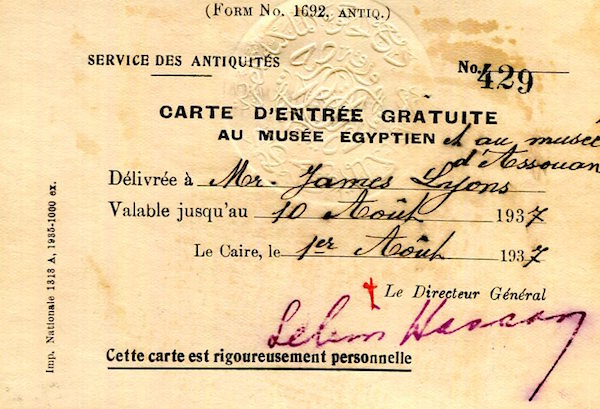 (FORM NO. 1692, ANTIQ.)
SERVICE DES ANTIQUITÉS
No. 429
CARTE D'ENTRÉE GRATUITE
AU MUSÉE EGYPTIEN et au musée
d'Assouan
Délivrée à Mr. James Lyons
Valable jusqu'au 10 Août 1937
Le Caire, le 1er Août 1937
Le Directeur Général
Selim Hassan
Cette carte est rigoureusement personnelle
Imp. Nationale 1313 A, 1935-1000 ex.